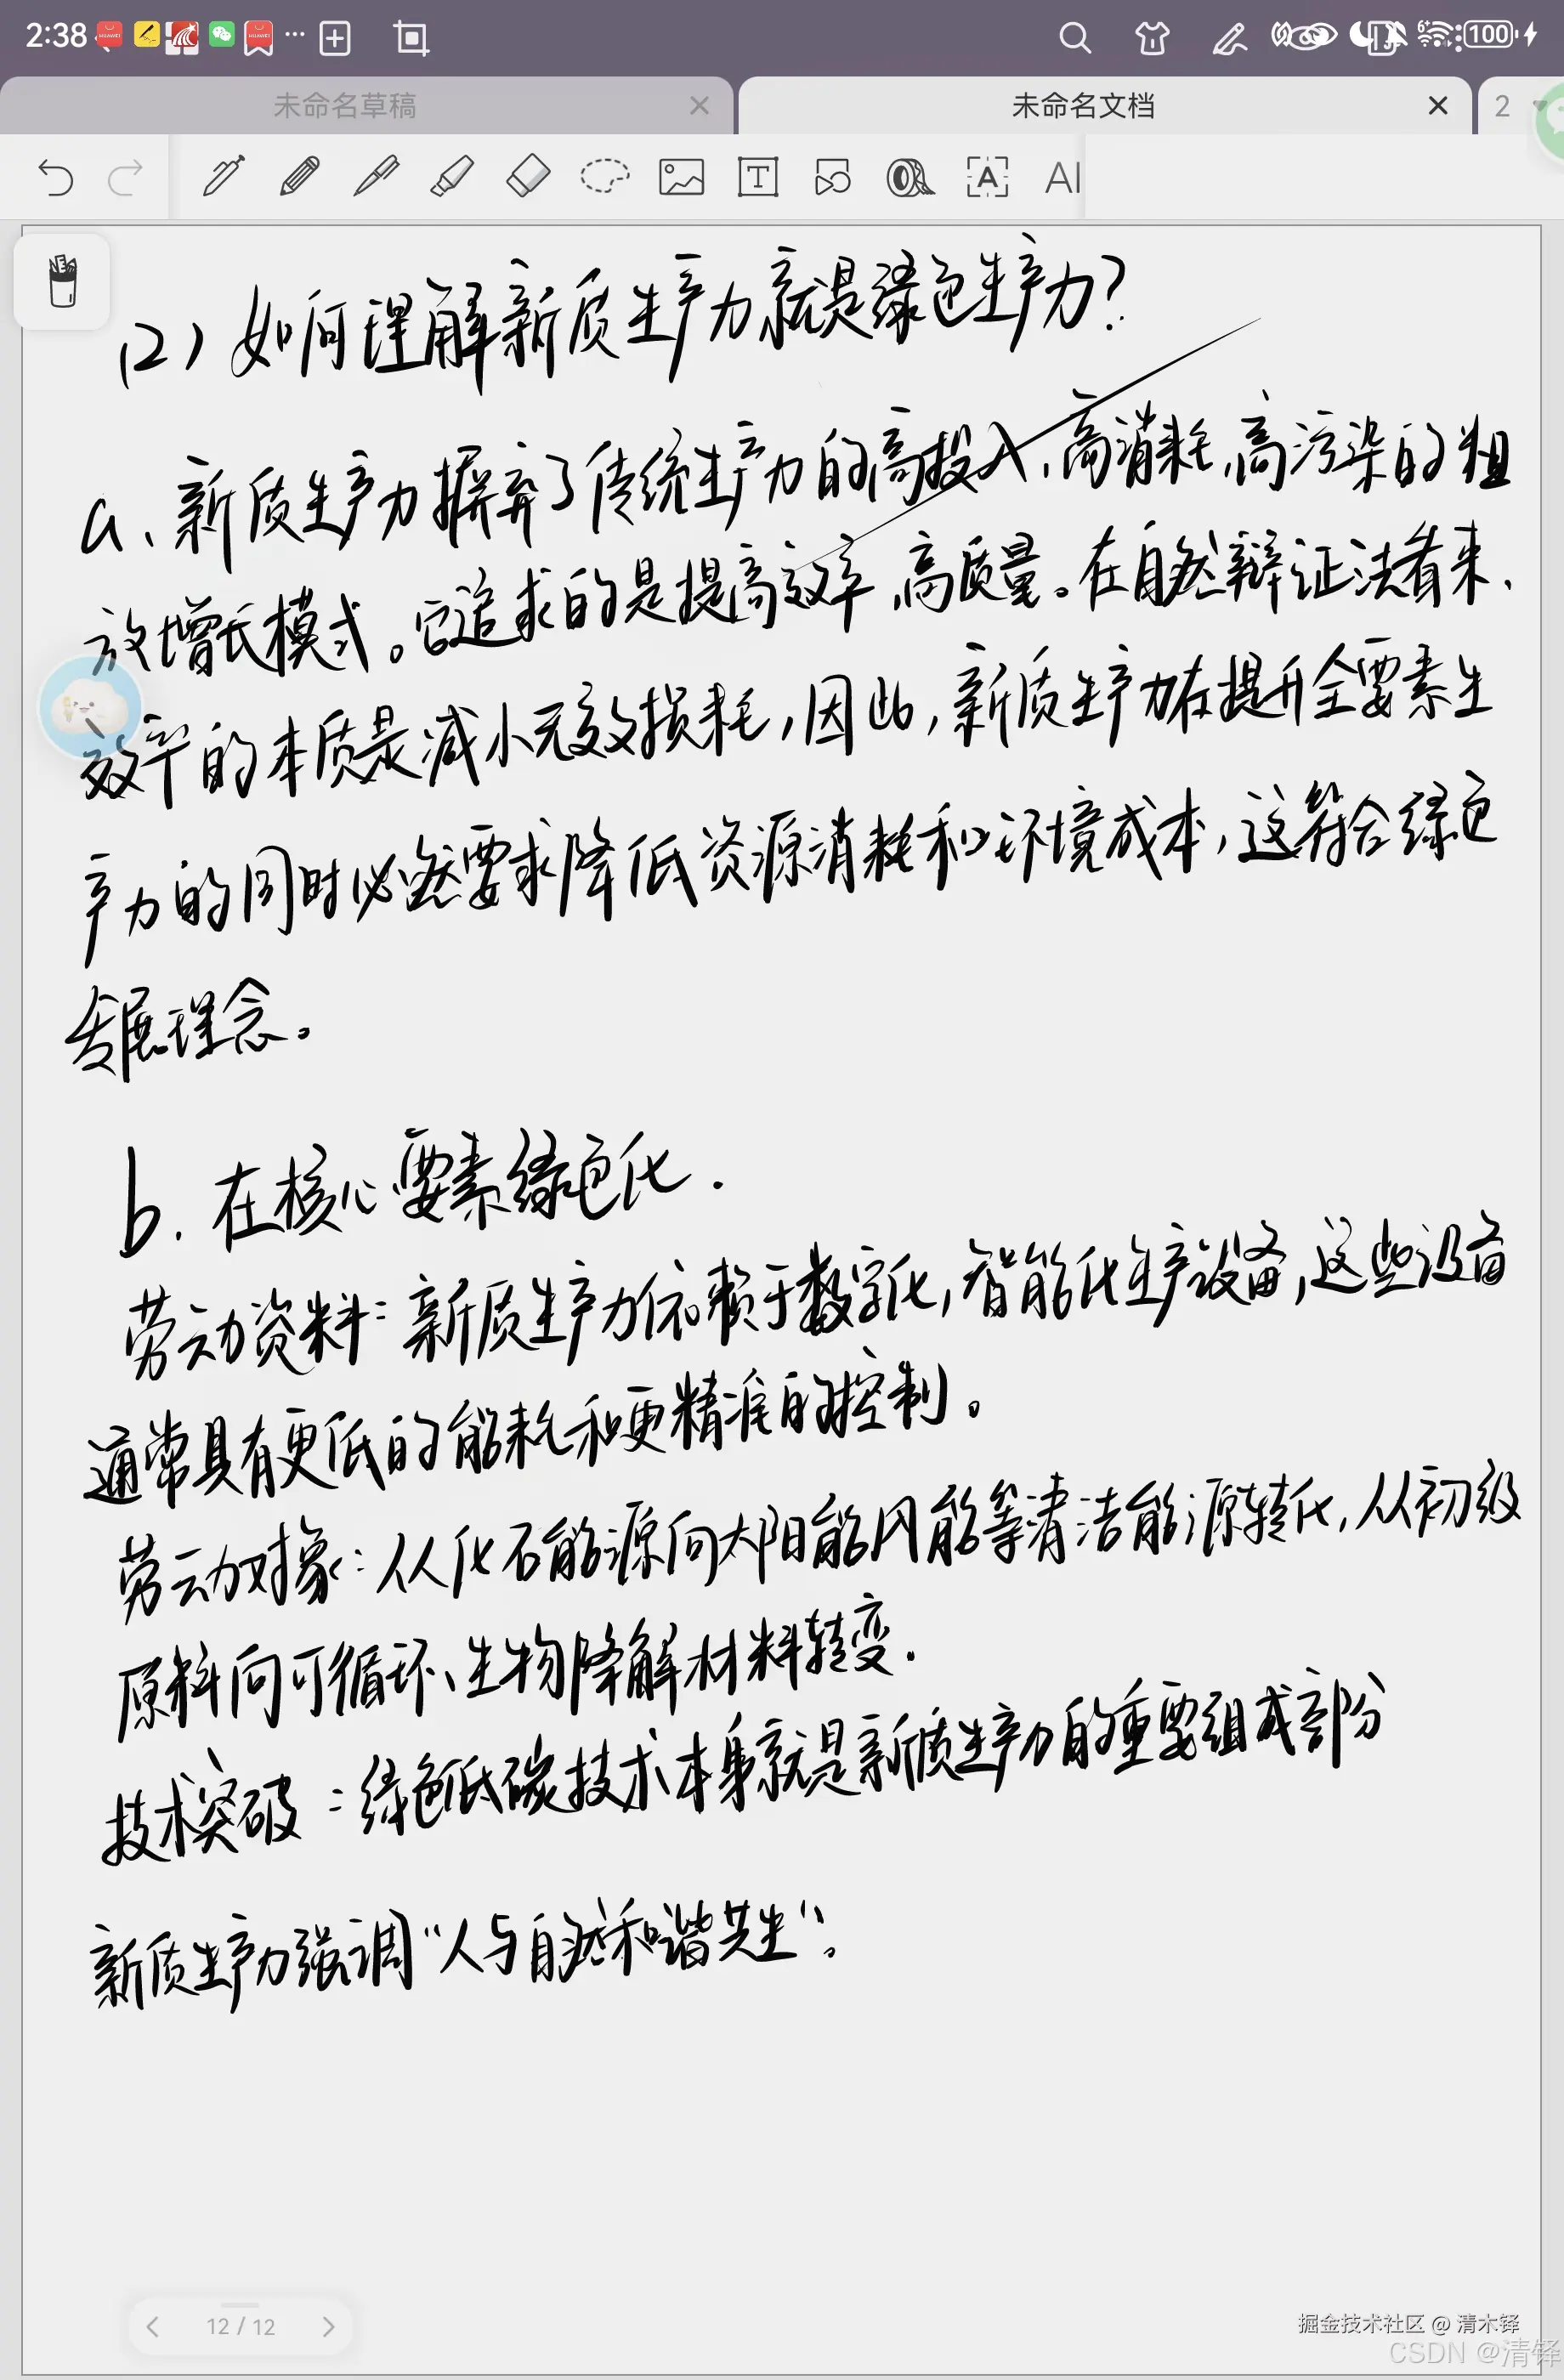 2:38
HUAWEI
HUAWEI
100
未命名草稿
未命名文档
2
T
A
AI
(2) 如何理解新质生产力就是绿色生产力?
a、新质生产力摒弃了传统生产力的高投入,高消耗,高污染的粗
放增长模式。它追求的是提高效率,高质量。在自然辩证法看来,
效率的本质是减小无效损耗,因此,新质生产力在提升全要素生
产力的同时必然要求降低资源消耗和环境成本,这符合绿色
发展理念。
b. 在核心要素绿色化.
劳动资料: 新质生产力依赖于数字化,智能化生产设备,这些设备
通常具有更低的能耗和更精准的控制。
劳动对象: 从化石能源向太阳能风能等清洁能源转化,从初级
原料向可循环、生物降解材料转变.
技术突破: 绿色低碳技术本身就是新质生产力的重要组成部分
新质生产力强调“人与自然和谐共生”。
12 / 12
掘金技术社区 @ 清木铎
CSDN @清铎